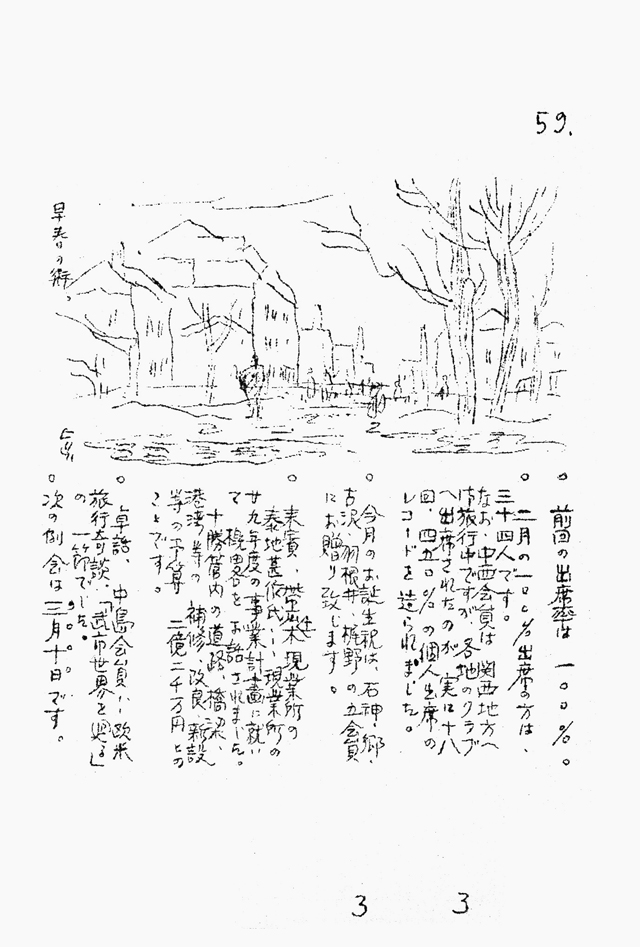 59.
早春の街。
。前回の出席率は 一〇〇%。
。二月の一〇〇%出席の方は、
三十四人です。
なお、中西会員は関西地方へ
御旅行中ですが、各地のクラブ
へ出席されたのが、実に十八
回、四五〇%の個人出席の
レコードを造られました。
。今月のお誕生祝は、石神、郷、
古沢、羽根井、梶野の五会員
にお贈り致します。
。来賓、帯広土木現業所の
泰地甚俊氏… 現業所の
廿九年度の事業計画に就い
て 概略をお話されました。
十勝管内の道路、橋梁、
港湾 等の 補修 改良 新設
等の予算 二億二千万円との
ことです。
。卓話、中島会員… 欧米
旅行奇談、「武市世界を廻る」
の一節でした。
。次の例会は 三月十日です。
3 3